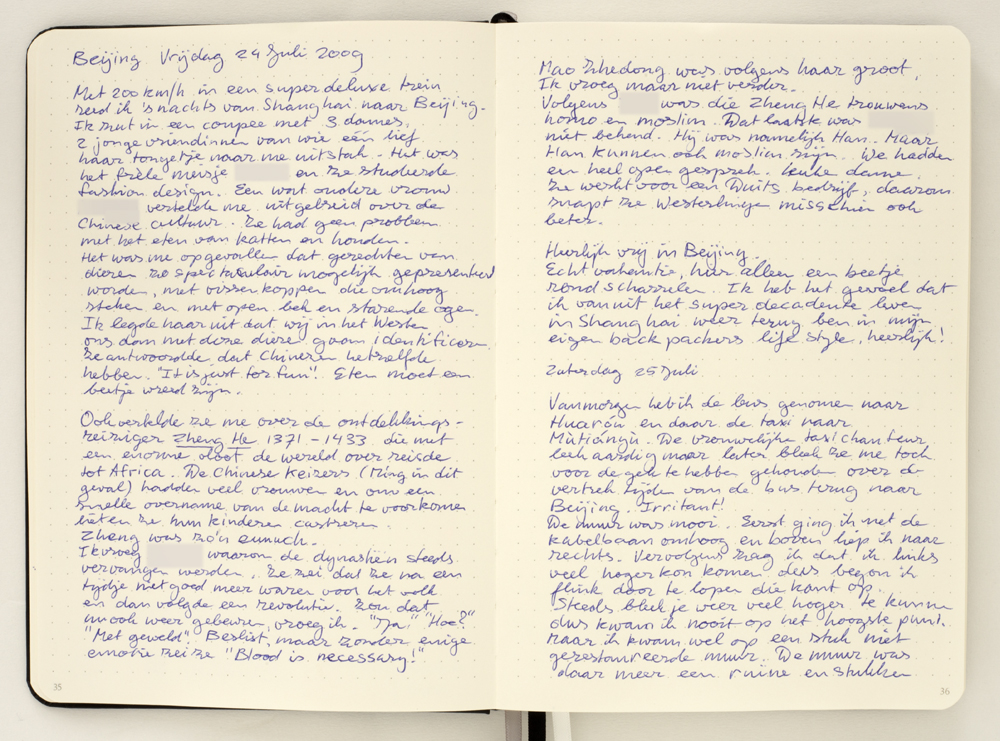 Beijing Vrijdag 24 Juli 2009
Met 200 km/h in een super deluxe trein
reed ik 's nachts van Shanghai naar Beijing.
Ik zat in een coupee met 3 dames,
2 jonge vriendinnen van wie één lief
haar tongetje naar me uitstak. Het was
het frêle meisje en ze studeerde
fashion design. Een wat oudere vrouw
vertelde me uitgebreid over de
Chinese cultuur. Ze had geen probleem
met het eten van katten en honden.
Het was me opgevallen dat gerechten van
dieren zo spectaculair mogelijk gepresenteerd
worden, met vissenkoppen die omhoog
steken en met open bek en starende ogen.
Ik legde haar uit dat wij in het Westen
ons dan met deze dieren gaan identificeren.
Ze antwoordde dat Chinezen hetzelfde
hebben. "It is just for fun"! Eten moet een
beetje wreed zijn.
Ook vertelde ze me over de ontdekkings-
reiziger Zheng He 1371 - 1433 die met
een enorme vloot de wereld over reisde
tot Africa. De Chinese Keizers (Ming in dit
geval) hadden veel vrouwen en om een
snelle overname van de macht te voorkomen
lieten ze hun kinderen castreren.
Zheng was zo'n eunuch.
Ik vroeg waarom de dynastieën steeds
vervangen werden. Ze zei dat ze na een
tijdje niet goed meer waren voor het volk
en dan volgde een revolutie. Zou dat
nu ook weer gebeuren, vroeg ik. "Ja" "Hoe?"
"Met geweld". Beslist, maar zonder enige
emotie zei ze "Blood is necessary!"
35
Mao Zhedong was volgens haar groot,
Ik vroeg maar niet verder.
Volgens was die Zheng He trouwens
homo en moslim. Dat laatste was
niet bekend. Hij was namelijk Han. Maar
Han kunnen ook moslim zijn. We hadden
een heel open gesprek. Leuke dame.
Ze werkt voor een Duits bedrijf, daarom
snapt ze Westerlingen misschien ook
beter.
Heerlijk vrij in Beijing.
Echt vakantie, hier alleen een beetje
rond scharrelen. Ik heb het gevoel dat
ik vanuit het super decadente leven
in Shanghai weer terug ben in mijn
eigen back packers life style, heerlijk!
Zaterdag 25 Juli
Vanmorgen heb ik de bus genomen naar
Huairou en daar de taxi naar
Mùtiányù. De vrouwelijke taxi chauffeur,
leek aardig maar later bleek ze me toch
voor de gek te hebben gehouden over de
vertrek tijden van de bus terug naar
Beijing. Irritant!
De muur was mooi. Eerst ging ik met de
kabelbaan omhoog en boven liep ik naar
rechts. Vervolgens zag ik dat ik links
veel hoger kon komen, dus begon ik
flink door te lopen die kant op.
Steeds bleek je weer veel hoger te kunnen
dus kwam ik nooit op het hoogste punt.
Maar ik kwam wel op een stuk niet
gerestaureerde muur. De muur was
daar meer een ruïne en stukken
36